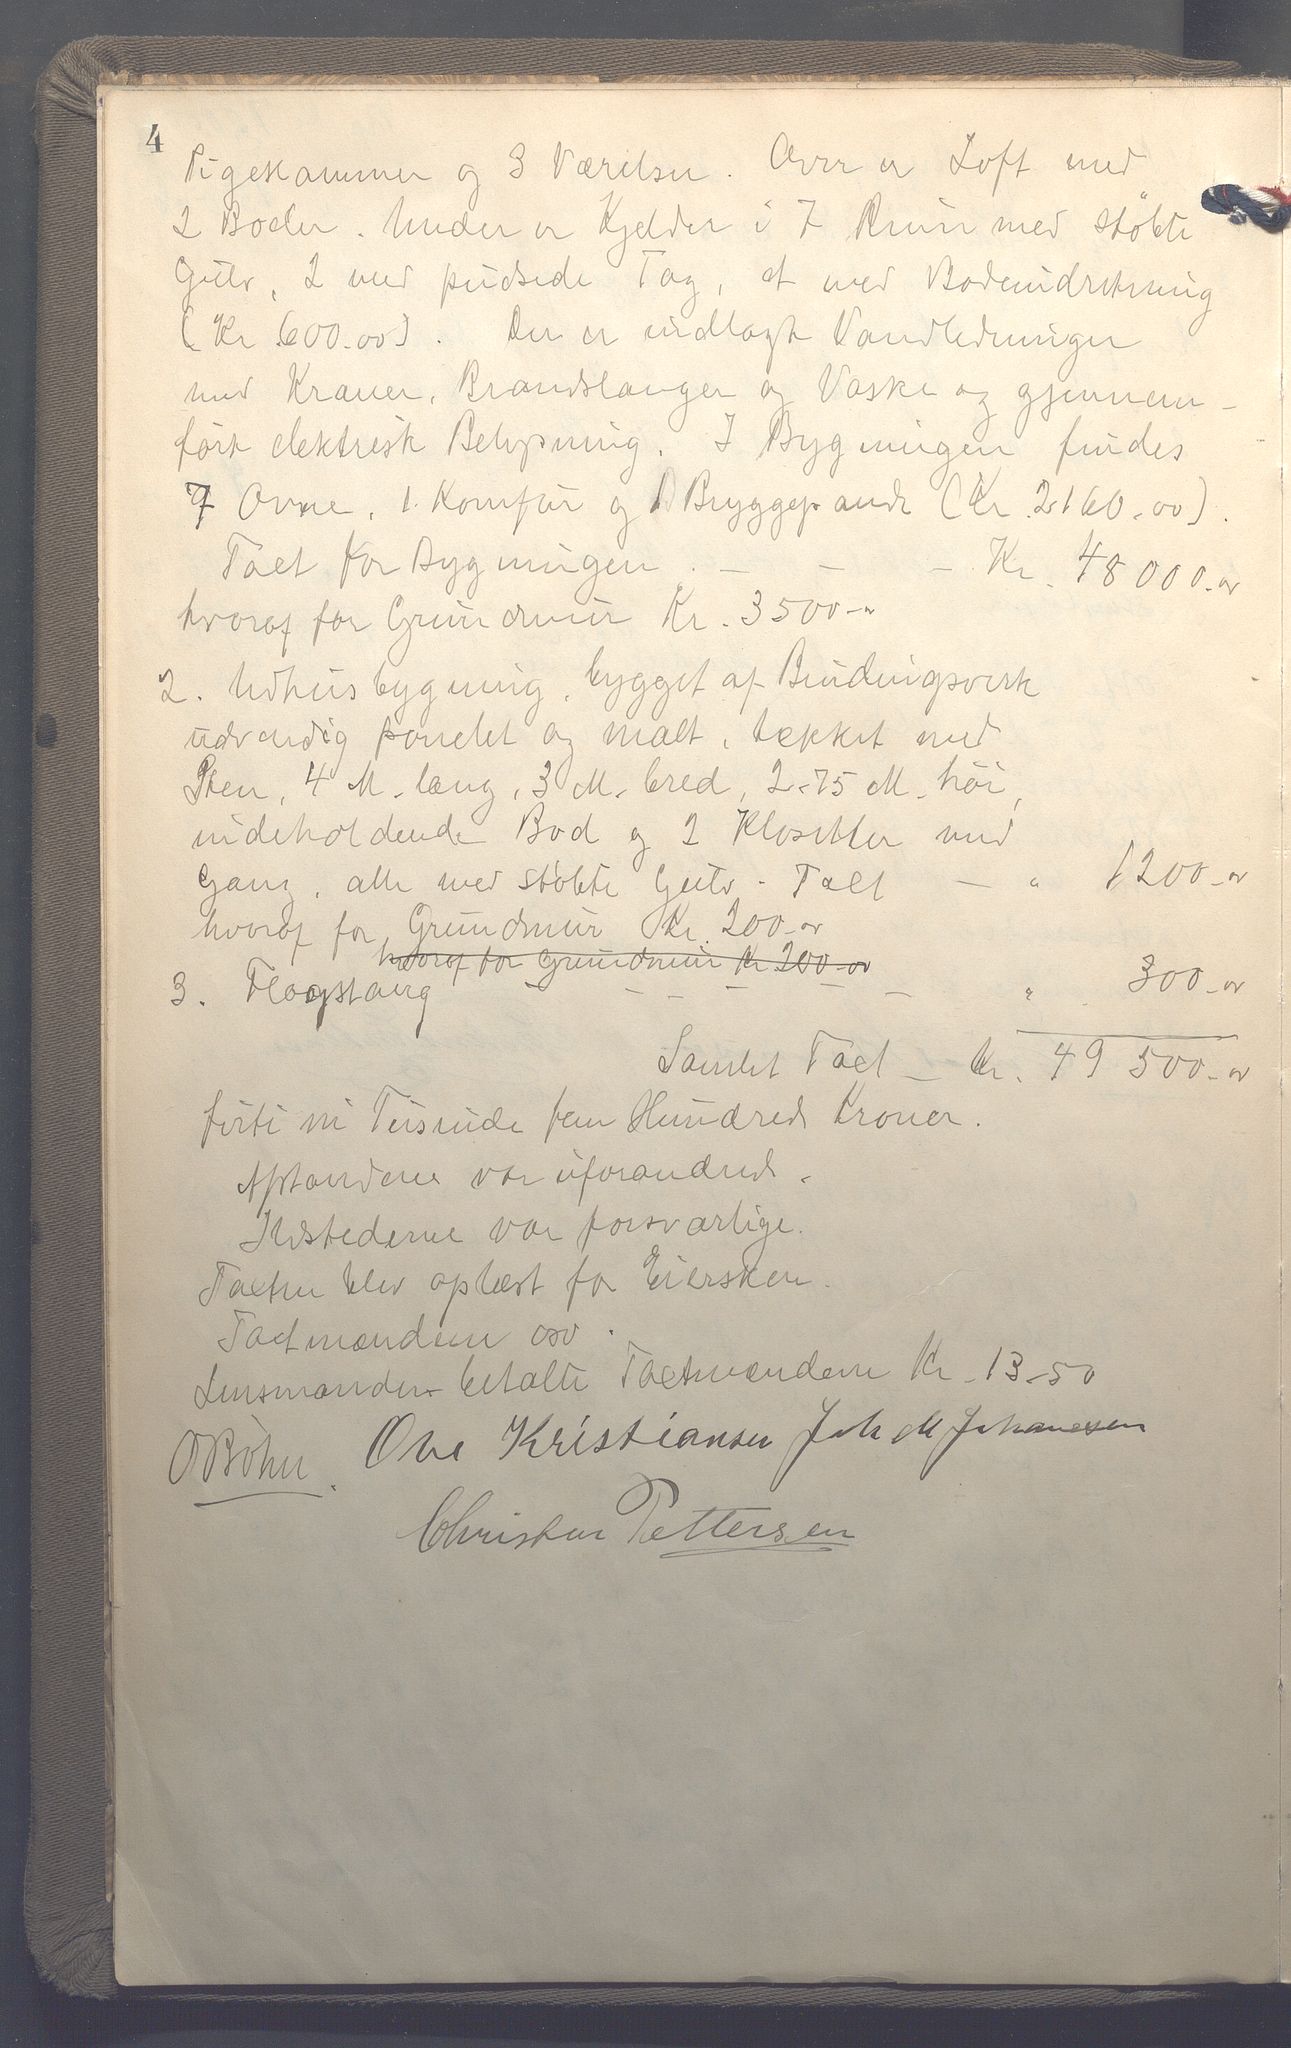 4
Pigekammer og 3 Værelser. Over er Loft med
2 Boder. Under er Kjelder i 7 Rum med støbte
Gulv, 2 med pudsede Tag, et med Bodeindretning
(Kr. 600.00). Der er indlagt Vandledninger
med Kraner, Brandslanger og Vaske og gjennem-
ført elektrisk Belysning. I Bygningen findes
7 Ovne, 1 Komfur og 1 Bryggepande (Kr. 2160.00).
Taxt for Bygningen. — — — Kr. 48 000-00
hvoraf for Grundmur Kr. 3500-"
2. Udhusbygning, bygget af Bindingsverk
udvendig panelet og malt, tækket med
Sten, 4 M. lang, 3 M. bred, 2.75 M. høi,
indeholdende Bod og 2 Klosetter med
Gang, alle med støbte Gulv. Taxt — " 1200-00
hvoraf for Grundmur Kr. 200-00
hvoraf for Grundmur Kr 200-00
3. Flagstang — — — — — — " 300-00
Samlet Taxt — Kr. 49 500-00
førti ni Tusinde fem Hundrede Kroner.
Afstandene var uforandrede.
Ildstederne var forsvarlige.
Taxten blev oplæst for Eiersken.
Taxtmændene osv.
Lensmanden betalte Taxtmændene Kr. 13-50
O Bøhn. Ove Kristiansen Joh M Johanesen
Christian Pettersen